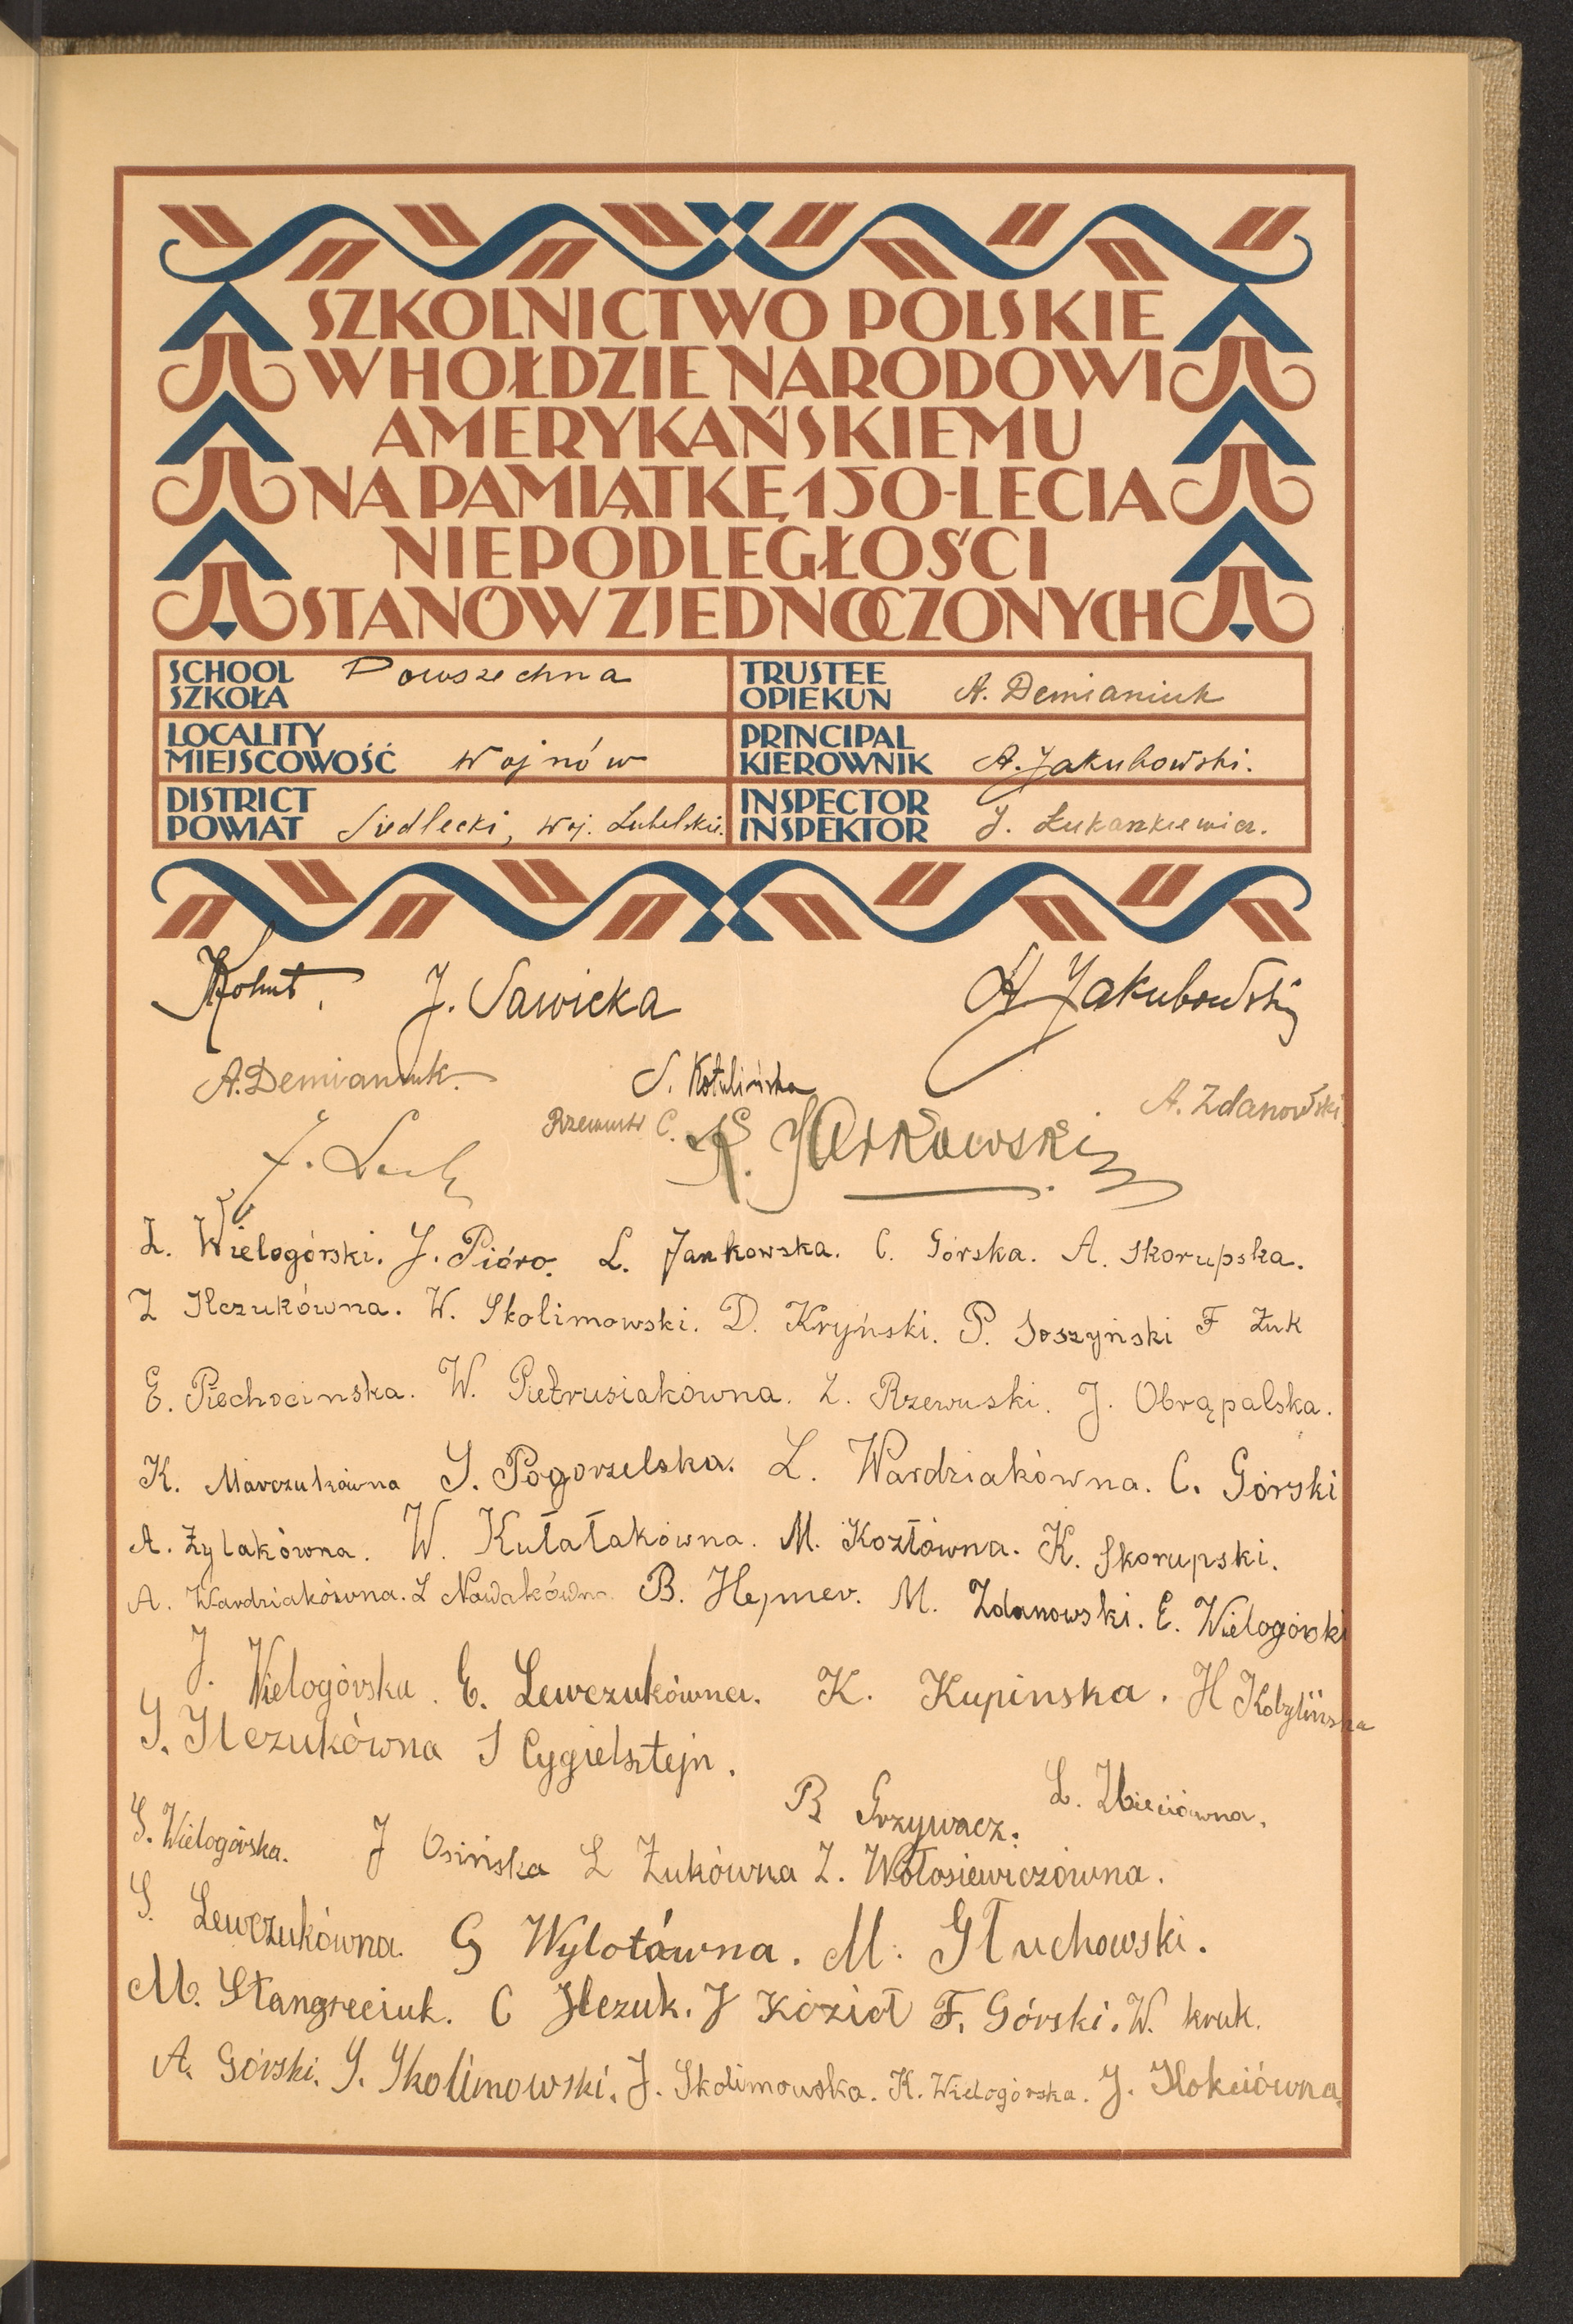 SZKOLNICTWO POLSKIE
W HOŁDZIE NARODOWI
AMERYKAŃSKIEMU
NA PAMIĄTKĘ 150-LECIA
NIEPODLEGŁOŚCI
STANÓW ZJEDNOCZONYCH
SCHOOL SZKOŁA Powszechna
TRUSTEE OPIEKUN A. Demianiuk
LOCALITY MIEJSCOWOŚĆ Wojnów
PRINCIPAL KIEROWNIK A. Jakubowski.
DISTRICT POWIAT Siedlecki, woj. Lubelskie.
INSPECTOR INSPEKTOR J. Łukaszkiewicz.
Kohut. J. Sawicka A Jakubowski
A. Demianiuk. S. Kotulińska A. Zdanowski
C.
J.
Z. Wielogórski. J. Pióro. L. Jankowska. C. Górska. A. Skorupska.
Z Ilczukówna. W. Skolimowski. D. Kryński. P. Soszyński F Żuk
E. Piechocinska. W. Pietrusiakówna. Z. Rzewuski. J. Obrąpalska.
K. Marczukówna S. Pogorzelska. L. Wardziakówna. C. Górski
A. Żylakówna. W. Kułałakówna. M. Kozłówna. K. Skorupski.
A. Wardziakówna. Z Nowakówna B. Hejmer. M. Zdanowski. E. Wielogórski
J. Wielogórska. E. Lewczukówna. K. Kupinska. H Kobylińska
S. Ilczukówna S Cygielsztejn.
B Grzywacz. L.
S. Wielogórska. J Osińska L Żukówna Z. Wołosiewiczówna.
S. Lewczukówna. G Wylotówna. M. Głuchowski.
M. Stangreciuk. C Ilczuk. J Kozioł F. Górski. W. kruk.
A. Górski. S. Skolimowski. J. Skolimowska. K. Wielogórska. J.